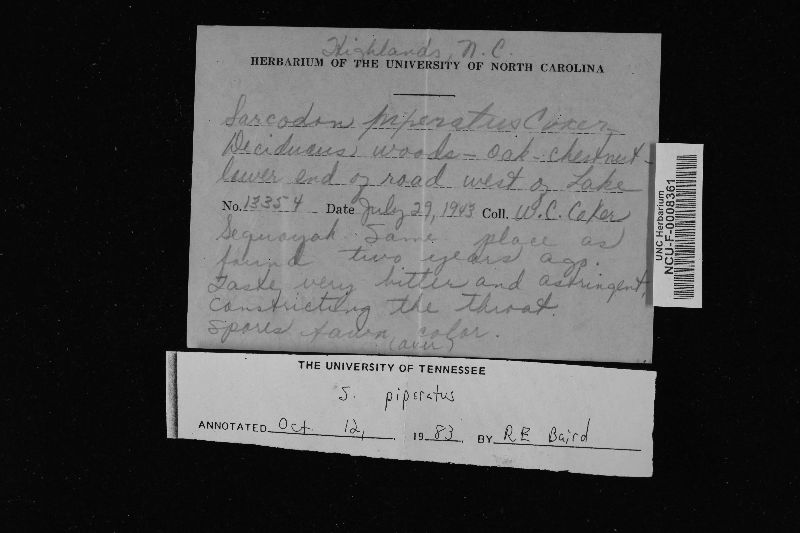 Highlands, N.C.
HERBARIUM OF THE UNIVERSITY OF NORTH CAROLINA
Sarcodon piperatus Coker
Deciduous woods - oak - chestnut -
lower end of road west of Lake
No. 13354 Date July 29, 1943 Coll. W. C. Coker
Sequoyah. Same place as
found two years ago.
Taste very bitter and astringent,
constricting the throat.
Spores fawn color.
(over)
UNC Herbarium
NCU-F-0008361
THE UNIVERSITY OF TENNESSEE
S. piperatus
ANNOTATED Oct 12, 1983 BY RE Baird